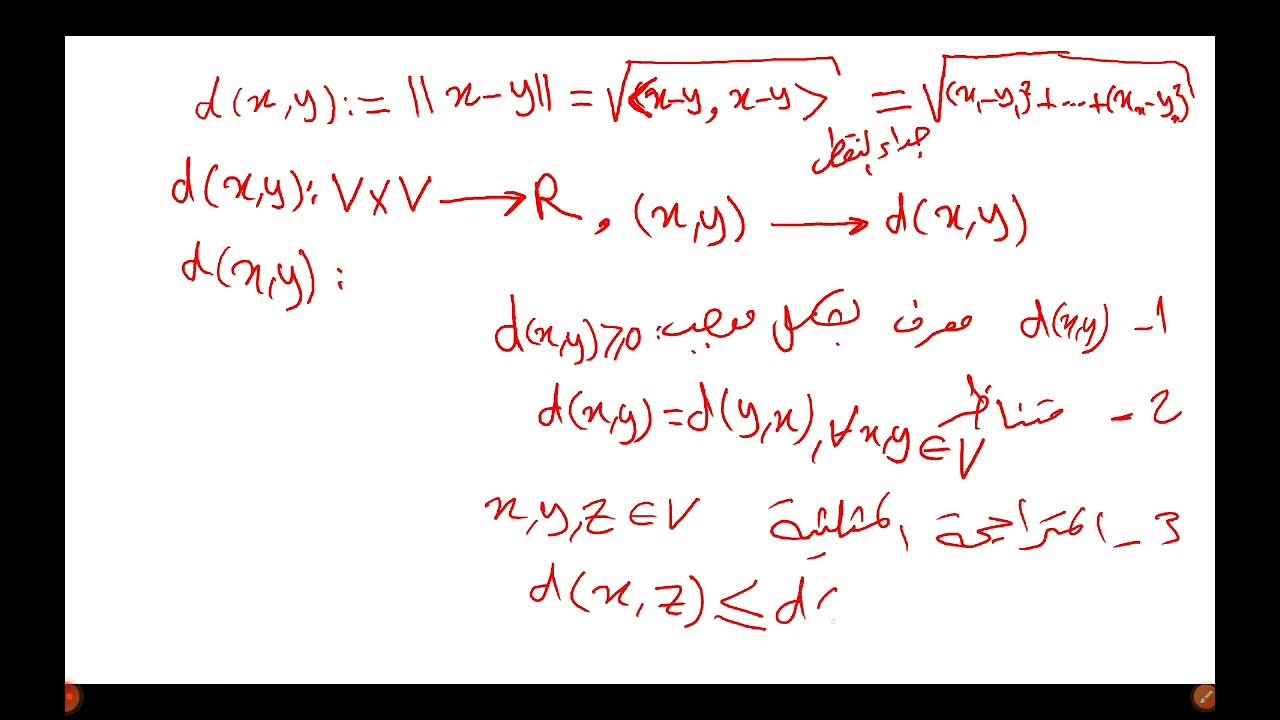 d(x,y) := ||x-y|| = √<x-y, x-y> = √(x₁-y₁)² + ... + (xₙ-yₙ)²
جداء
d(x,y): V×V → R, (x,y) → d(x,y)
d(x,y) :
1 - d(x,y) معرف بشكل موجب: d(x,y) ≥ 0
2 - متناظر d(x,y) = d(y,x), ∀x,y ∈ V
3 - المتراجحة المثلثية x,y,z ∈ V
d(x,z) ≤ d(